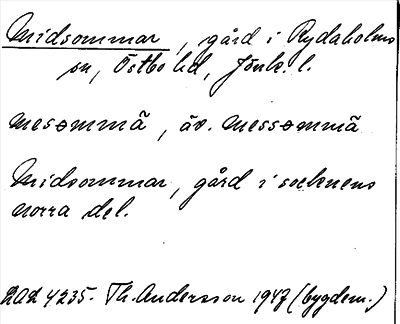 Midsommar, gård i Rydaholms
sn, Östbo hd, Jönk. l.
mesəmmã, äv. messəmmã
Midsommar, gård i socknens
norra del.
ULMA 4235. Th. Andersson 1947 (bygdem.)